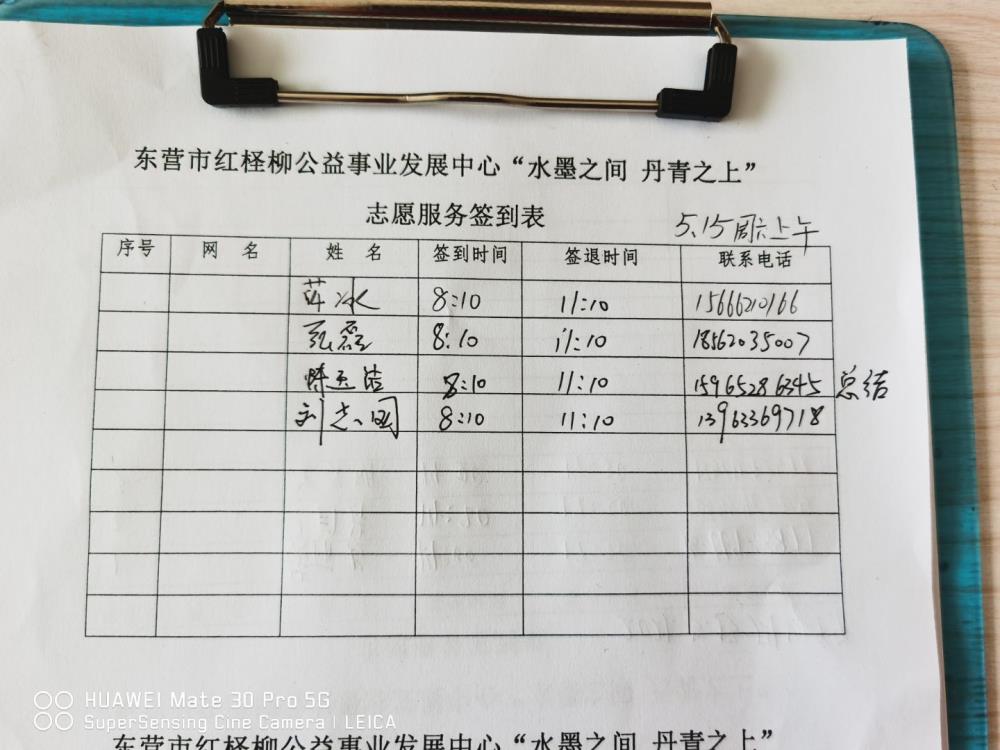 东营市红柽柳公益事业发展中心“水墨之间 丹青之上”
志愿服务签到表
5.15周六上午
序号 网 名 姓 名 签到时间 签退时间 联系电话
冰 8:10 11:10 15666210166
张磊 8:10 11:10 18562035007
陈玉洁 8:10 11:10 15965286345 总结
刘志国 8:10 11:10 13963369718
HUAWEI Mate 30 Pro 5G
SuperSensing Cine Camera | LEICA
东营市红柽柳公益事业发展中心“水墨之间 丹青之上”